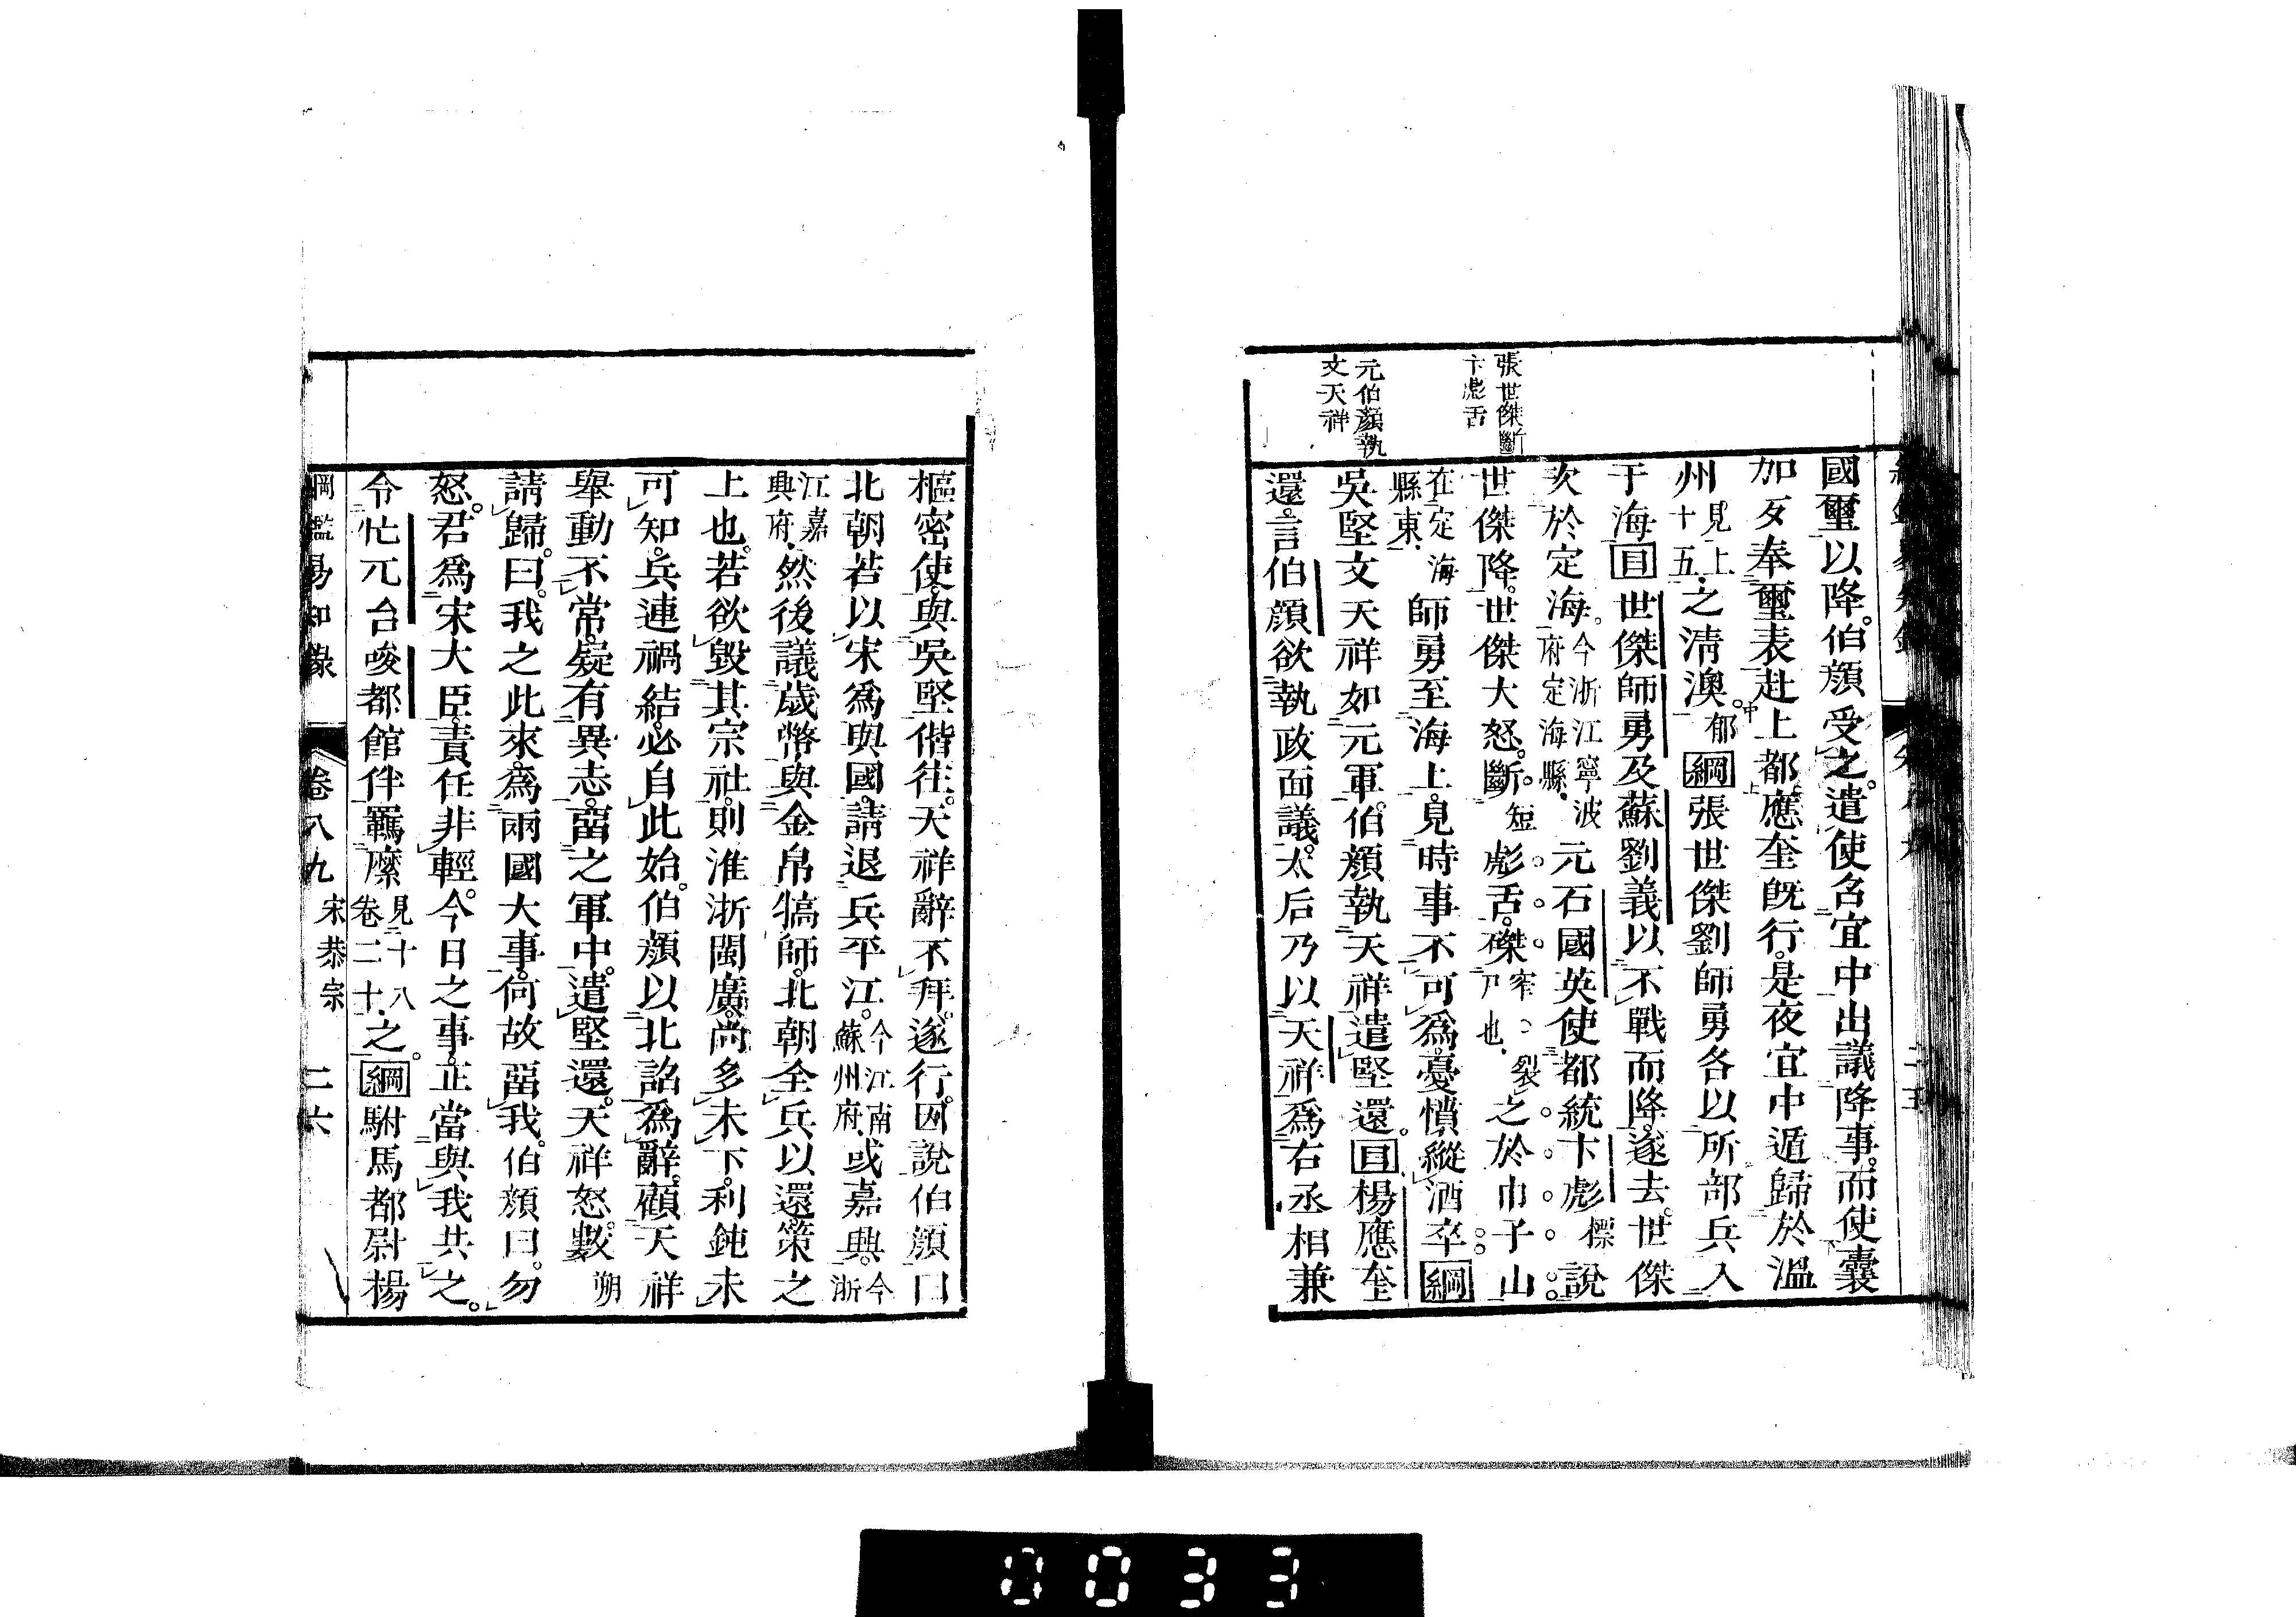 張世傑斷
卞彪舌
元伯顏執
文天祥
國璽以降。伯顏受之。遣使召宜中出議降事。而使囊
加歹奉璽表赴上都。應奎旣行。是夜宜中遁歸於溫
州見上十五.之淸澳。郁綱張世傑劉師勇各以所部兵入
于海目世傑師勇及蘇劉義以不戰而降。遂去。世傑
次於定海。今浙江寧波府定海縣.元石國英使都統卞彪標說
世傑降。世傑大怒。斷短彪舌。磔窄裂尸也.之於巾子山
在定海縣東.師勇至海上。見時事不可爲。憂憤縱酒卒。綱
吳堅文天祥如元軍。伯顏執天祥遣堅還。目楊應奎
還。言伯顏欲執政面議。太后乃以天祥爲右丞相兼
樞密使。與吳堅偕往。天祥辭不拜。遂行。因說伯顏曰
北朝若以宋爲與國。請退兵平江。今江南蘇州府.或嘉興。今浙
江嘉興府.然後議歲幣與金帛犒師。北朝全兵以還。策之
上也。若欲毀其宗社。則淮浙閩廣。尙多未下。利鈍未
可知。兵連禍結。必自此始。伯顏以北詔爲辭。顧天祥
舉動不常。疑有異志。畱之軍中。遣堅還。天祥怒。數朔
請歸。曰。我之此來。爲兩國大事。何故畱我。伯顏曰。勿
怒。君爲宋大臣。責任非輕。今日之事。正當與我共之。
令忙元台唆都館伴羈縻見十八卷二十.之。綱駙馬都尉楊
綱鑑易知錄 卷八九 宋恭宗 二六
0033